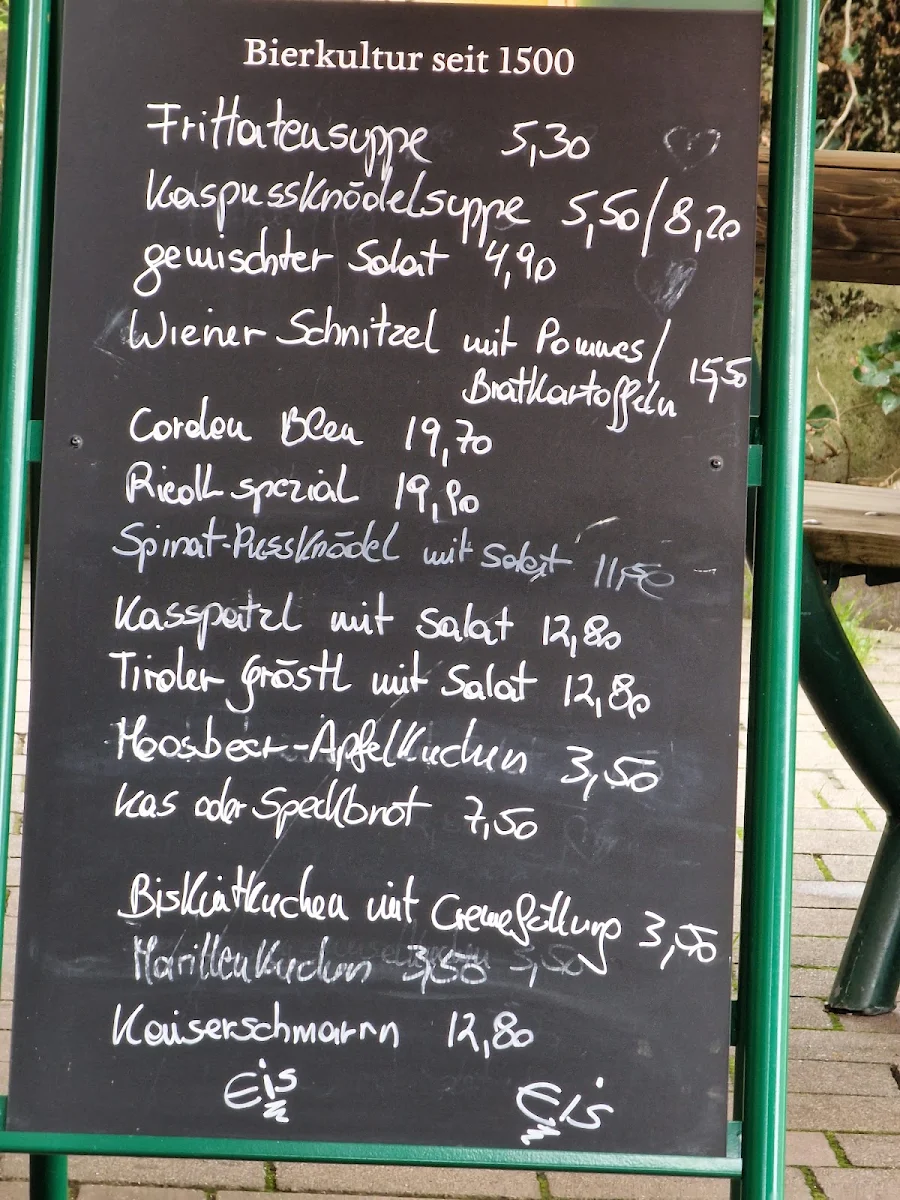 Bierkultur seit 1500
Frittatensuppe 5,30
Kaspressknödelsuppe 5,50/8,20
gemischter Salat 4,90
Wiener Schnitzel mit Pommes/
Bratkartoffeln 15,50
Cordon Bleu 19,70
spezial 19,90
Spinat-Pressknödel mit Salat 11,50
Kasspatzl mit Salat 12,80
Tiroler Gröstl mit Salat 12,80
Moosbeer-Apfelkuchen 3,50
Kas oder Speckbrot 7,50
Biskuitkuchen mit Cremefüllung 3,50
Marillenkuchen 3,50
Kaiserschmarrn 12,80
Eis Eis